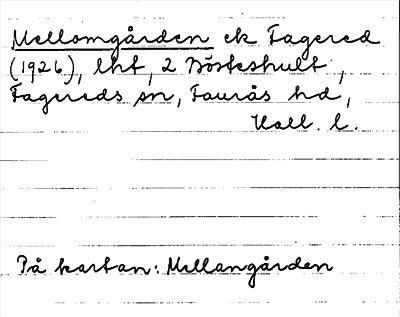 Mellomgården ek Fagered
(1926), lht, 2 Bösteshult,
Fagereds sn, Faurås hd,
Hall. l.
På kartan: Mellangården